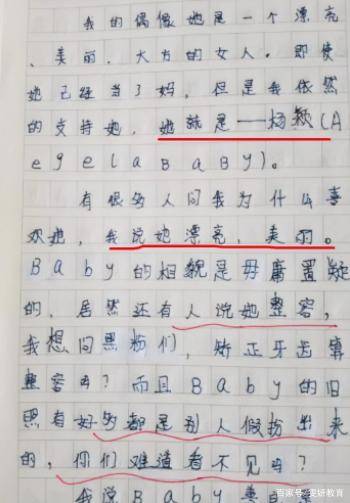 我的偶像她是一个漂亮
、美丽,大方的女人。即使
她已经当了妈,但是我依然
的支持她,她就是——杨颖(A
egelaBaBy)。
有很多人问我为什么喜
欢她,我说她漂亮,美丽。
Baby的相貌是毋庸置疑
的,居然还有人说她整容,
我想问黑粉们,矫正牙齿算
整容吗?而且Baby的旧
照有好多都是别人假扮出来
的,你们难道看不见吗?
我说Baby善良
百家号/斐妍教育